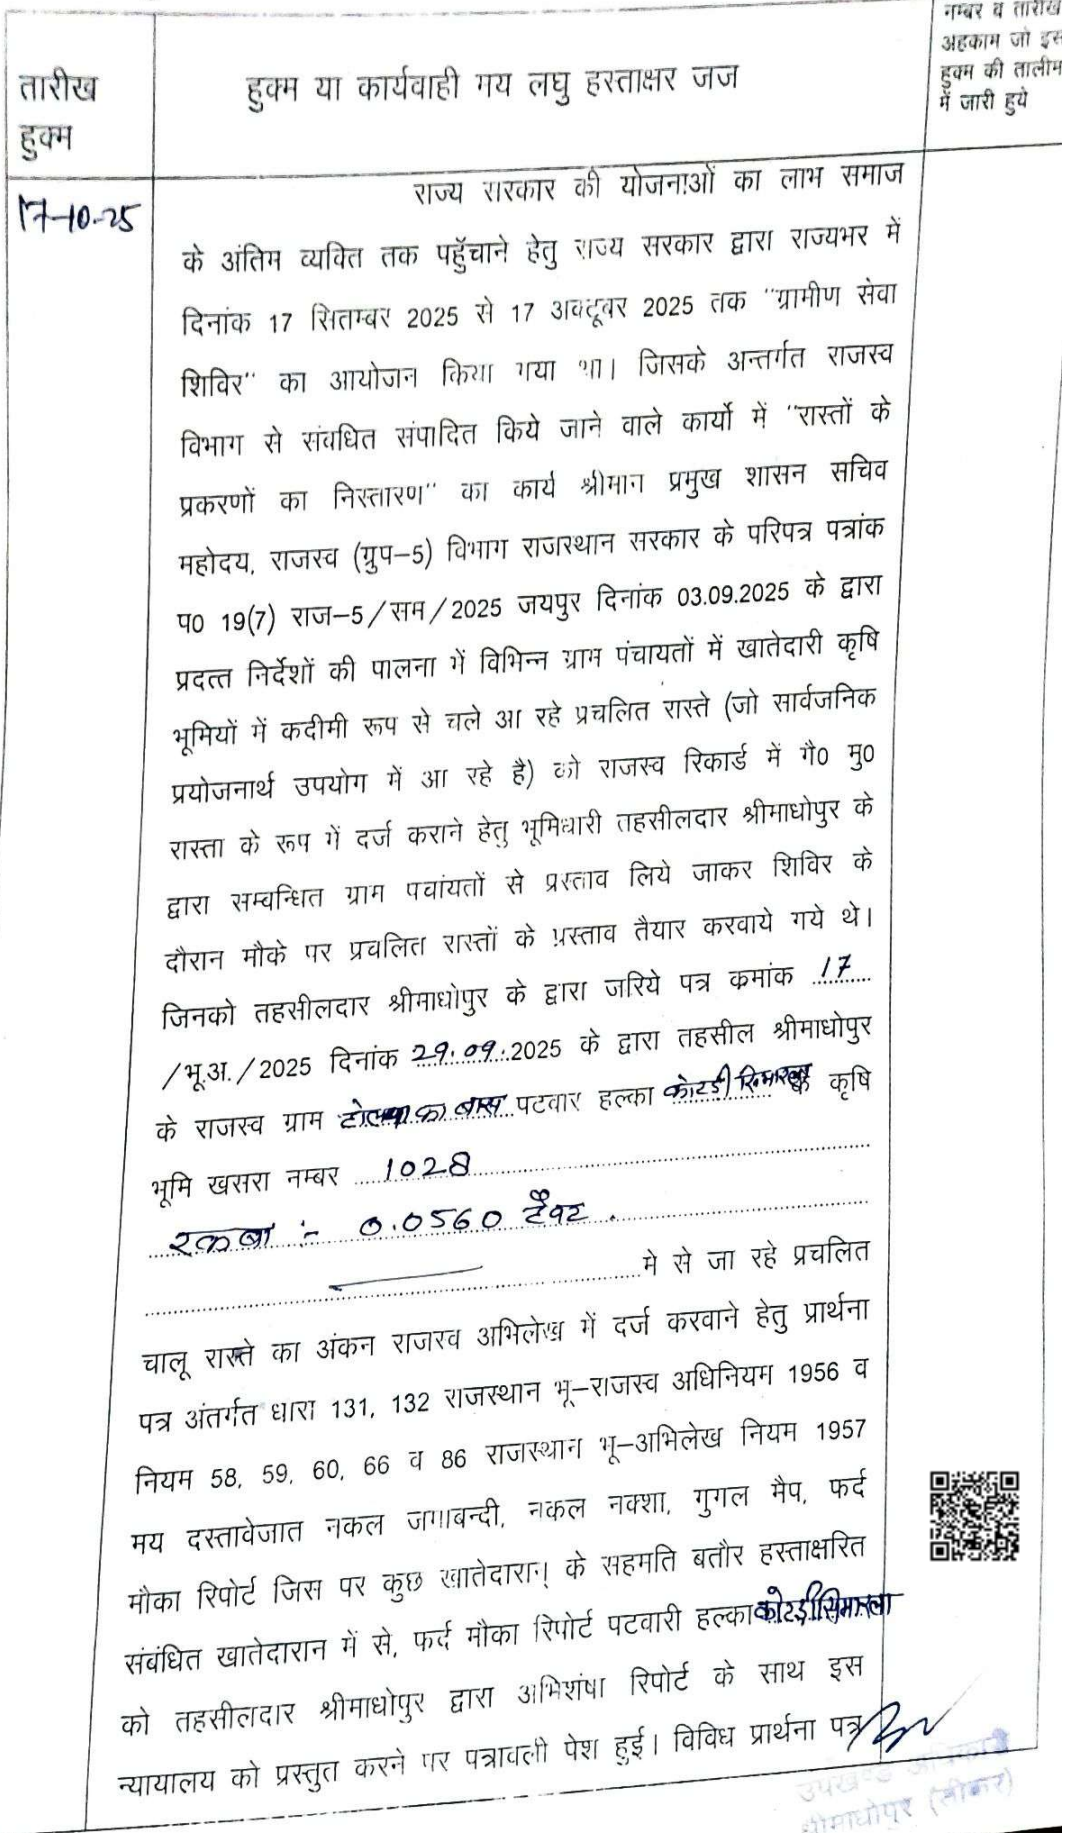 नम्बर व तारीख
अहकाम जो इस
हुक्म की तालीम
में जारी हुये
तारीख
हुक्म
हुक्म या कार्यवाही मय लघु हस्ताक्षर जज
17-10-25
राज्य सरकार की योजनाओं का लाभ समाज
के अंतिम व्यक्ति तक पहुँचाने हेतु राज्य सरकार द्वारा राज्यभर में
दिनांक 17 सितम्बर 2025 से 17 अक्टूबर 2025 तक "ग्रामीण सेवा
शिविर" का आयोजन किया गया था। जिसके अन्तर्गत राजस्व
विभाग से संवधित संपादित किये जाने वाले कार्यो में "रास्तों के
प्रकरणों का निस्तारण" का कार्य श्रीमान प्रमुख शासन सचिव
महोदय, राजस्व (ग्रुप-5) विभाग राजस्थान सरकार के परिपत्र पत्रांक
प0 19(7) राज-5/सम/2025 जयपुर दिनांक 03.09.2025 के द्वारा
प्रदत्त निर्देशों की पालना में विभिन्न ग्राम पंचायतों में खातेदारी कृषि
भूमियों में कदीमी रूप से चले आ रहे प्रचलित रास्ते (जो सार्वजनिक
प्रयोजनार्थ उपयोग में आ रहे है) को राजस्व रिकार्ड में गै0 मु0
रास्ता के रूप में दर्ज कराने हेतु भूमिधारी तहसीलदार श्रीमाधोपुर के
द्वारा सम्वन्धित ग्राम पचांयतों से प्रस्ताव लिये जाकर शिविर के
दौरान मौके पर प्रचलित रास्तों के प्रस्ताव तैयार करवाये गये थे।
जिनको तहसीलदार श्रीमाधोपुर के द्वारा जरिये पत्र कमांक 17
/भू.अ./2025 दिनांक 29.09.2025 के द्वारा तहसील श्रीमाधोपुर
के राजस्व ग्राम का बास पटवार हल्का कोटडी सिमारला के कृषि
भूमि खसरा नम्बर 1028
रकबा :- 0.0560 हैक्ट.
मे से जा रहे प्रचलित
चालू रास्ते का अंकन राजस्व अभिलेख में दर्ज करवाने हेतु प्रार्थना
पत्र अंतर्गत धारा 131, 132 राजस्थान भू-राजस्व अधिनियम 1956 व
नियम 58, 59, 60, 66 व 86 राजस्थान भू-अभिलेख नियम 1957
मय दस्तावेजात नकल जमाबन्दी, नकल नक्शा, गुगल मैप, फर्द
मौका रिपोर्ट जिस पर कुछ खातेदारान् के सहमति बतौर हस्ताक्षरित
संबंधित खातेदारान में से, फर्द मौका रिपोर्ट पटवारी हल्का कोटडी सिमारला
को तहसीलदार श्रीमाधोपुर द्वारा अभिशंषा रिपोर्ट के साथ इस
न्यायालय को प्रस्तुत करने पर पत्रावली पेश हुई। विविध प्रार्थना पत्र
उपखण्ड अधिकारी
श्रीमाधोपुर (सीकर)